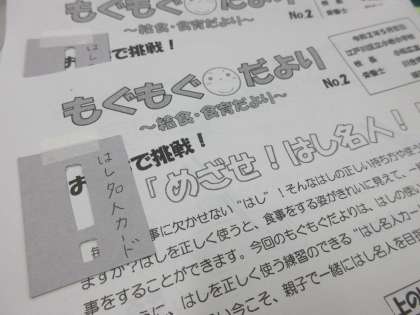 もぐもぐ だより
No.2
〜給食・食育だより〜
はし
で挑戦！
もぐもぐ だより
No.2
〜給食・食育だより〜
で挑戦！
はし名人カード
「めざせ！はし名人！
事に欠かせない“はし”！そんなはしの正しい持ち方や使う
ますか？はしを正しく使うと、食事をする姿がきれいに見えて、
事をすることができます。今回のもぐもぐだよりは、はしの使
うに、はしを正しく使う練習のできる“はし名人カ
い今こそ、親子で一緒にはし名人を目
上の